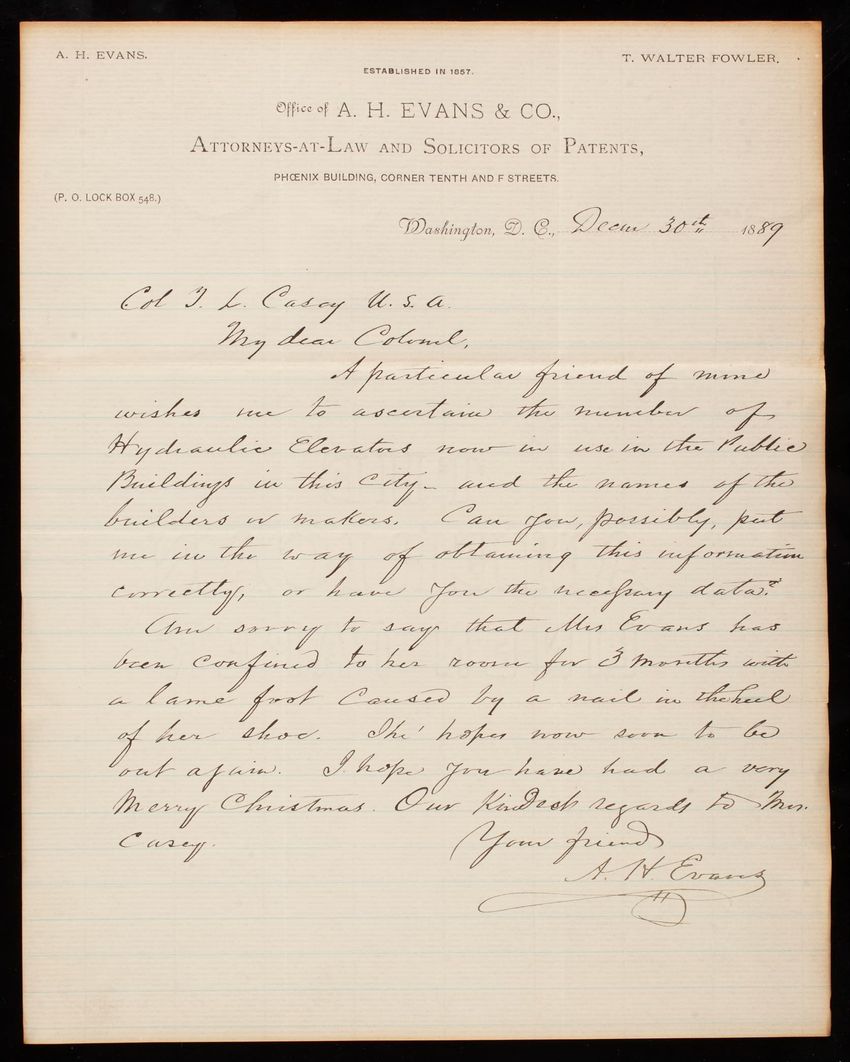 A. H. EVANS.
T. WALTER FOWLER.
ESTABLISHED IN 1857.
Office of A. H. EVANS & CO.,
ATTORNEYS-AT-LAW AND SOLICITORS OF PATENTS,
PHŒNIX BUILDING, CORNER TENTH AND F STREETS.
(P. O. LOCK BOX 548.)
Washington, D. C., Decem 30th 1889
Col T. L. Casey U. S. A.
My dear Colonel,
A particular friend of mine
wishes me to ascertain the number of
Hydraulic Elevators now in use in the Public
Buildings in this City - and the names of the
builders or makers. Can you, possibly, put
me in the way of obtaining this information
correctly, or have you the necessary data?
Am sorry to say that Mrs Evans has
been confined to her room for 3 months with
a lame foot caused by a nail in the heel
of her shoe. She hopes now soon to be
out again. I hope you have had a very
Merry Christmas. Our Kindest regards to Mrs.
Casey.
Your friend
A. H. Evans